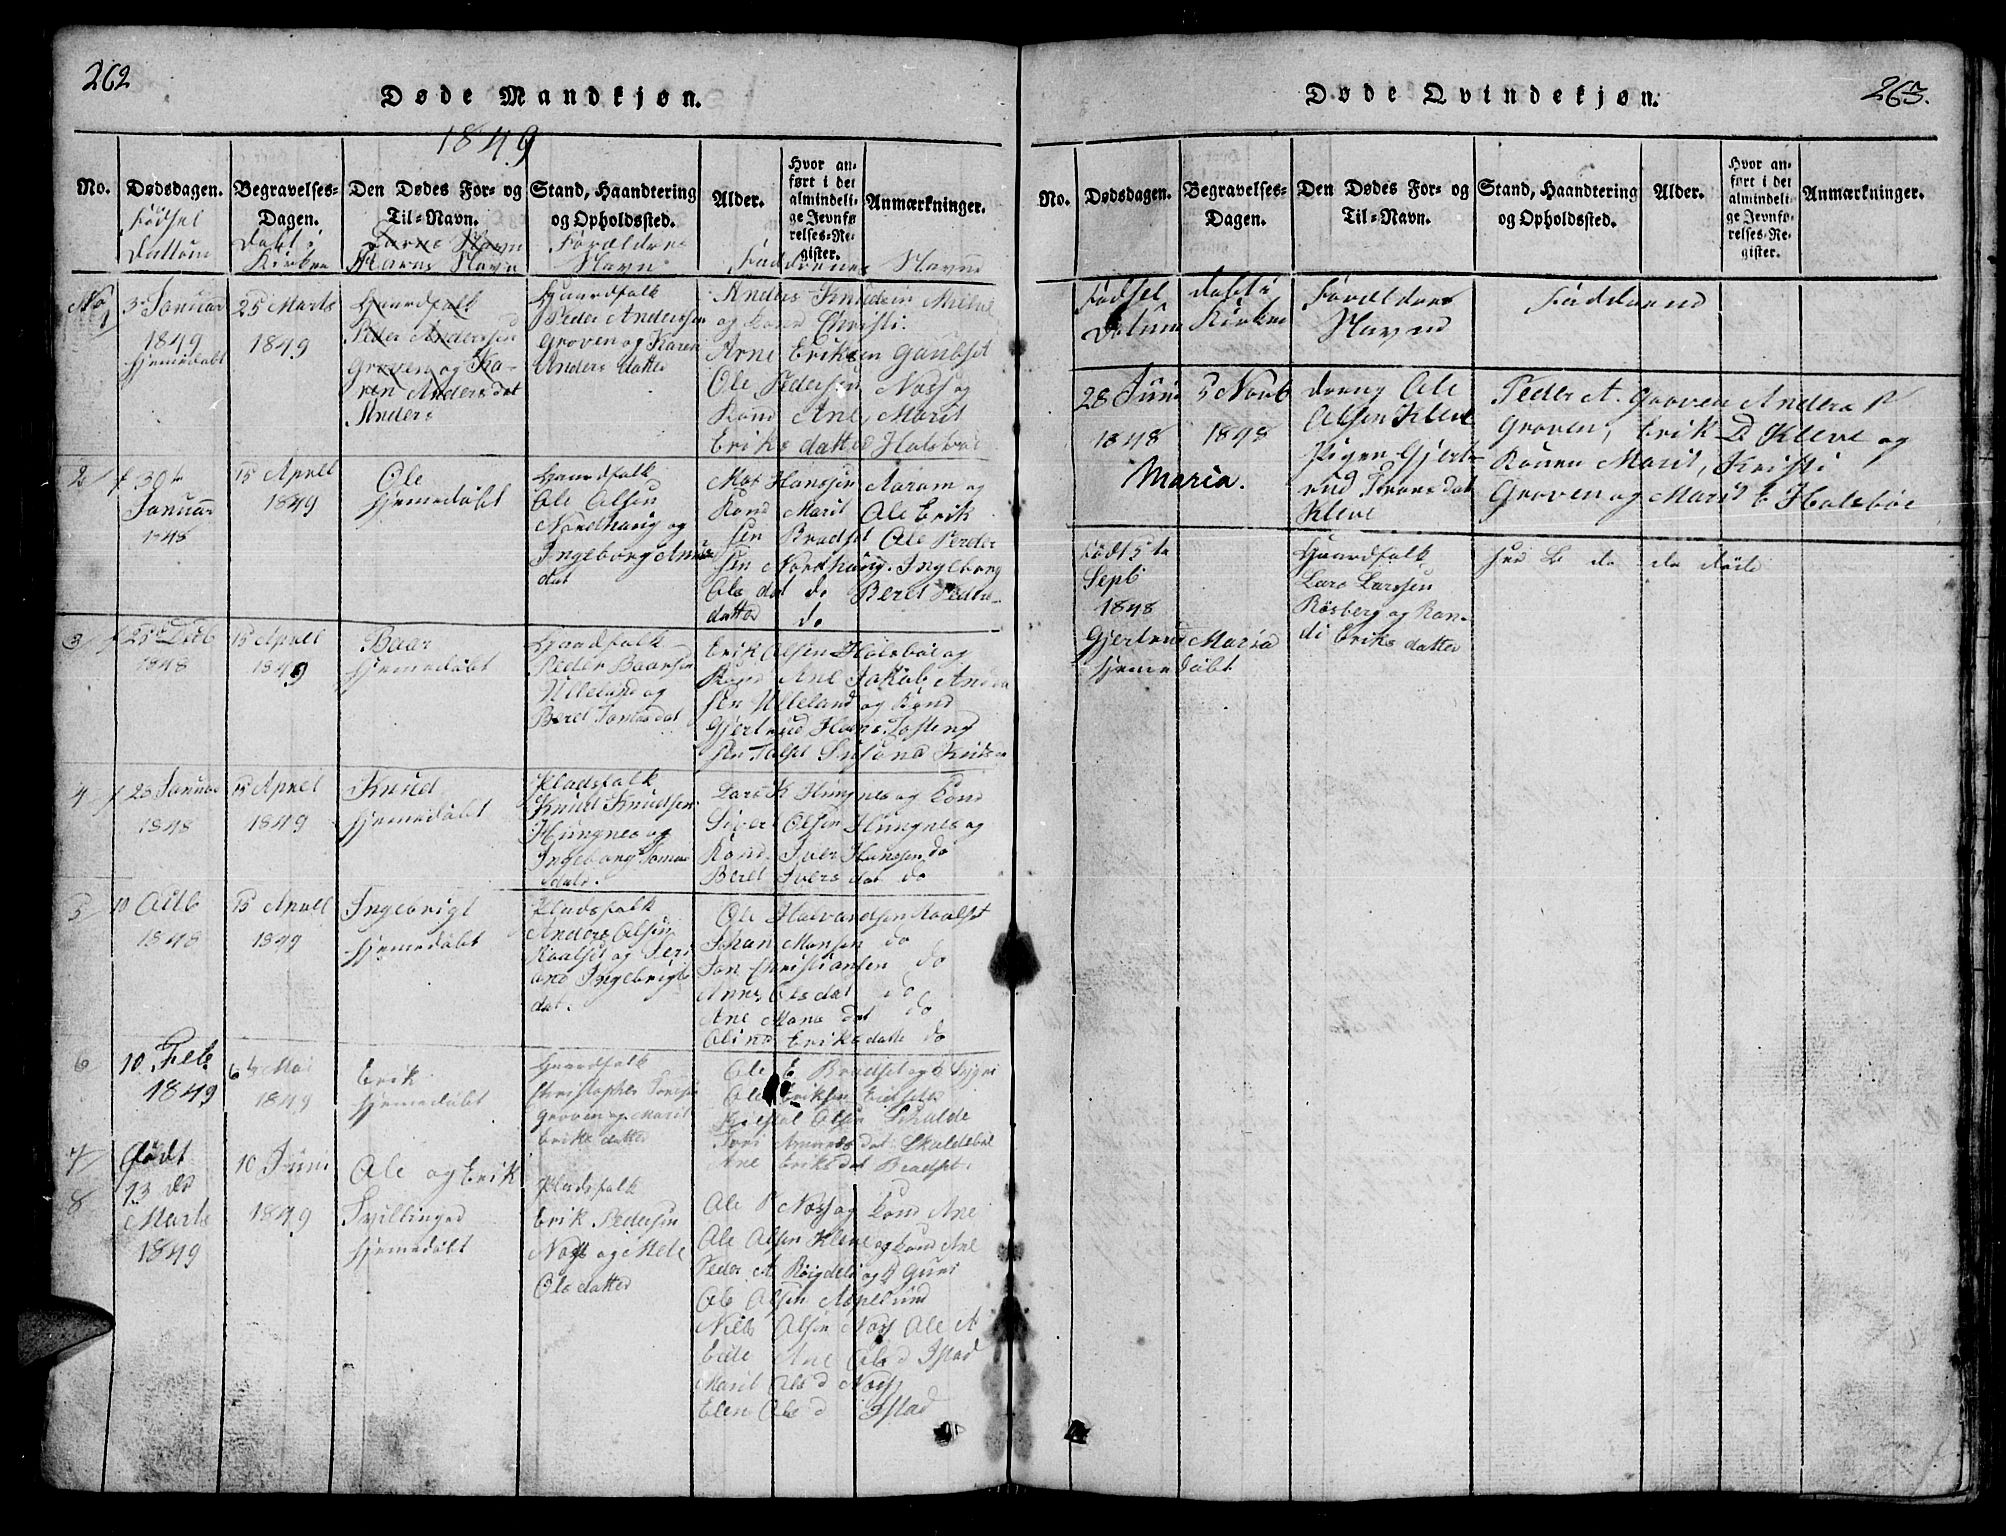 262
Døde Mandkjøn.
1849
No.
Dødsdagen.
Begravelses-
Dagen.
Den Dødes For- og
Til-Navn.
Stand, Haandtering
og Opholdssted.
Alder.
Hvor an-
ført i det
almindeli-
ge Jevnfø-
relses-Re-
gister.
Anmærkninger.
Fødsel
Dattum
Døbt i
Kirken
Barns Navn
Barns Navn
Foreldrenes
Navn
Faddrenes Navne
No 1
3 Januar
1849
hjemedøbt
25 Marts
1849
Gaardfolk
Peder Anderssen
Groven og Ka-
ren Andersdat
Anders
Gaardfolk
Peder Anderssen
Groven og Karen
Anders datter
Anders Knudsen
og Kond Christi.
Arne Eriksen Gaubset
Ole Pedersen Noss og
Kond Ane, Marit
Eriks datter Holsbøe
2
f 30te
Januar
1848
15 Aprel
1849
Ole
hjemedøbt
Gaardfolk
Ole Olsen
Nordhaug og
Ingeborg
dat
Mas Hanssen Aarøm og
Kond Marit Ole Erik
sen Bradset Ole Peder
sen Nordhaug. Ingeborg
Ols dat do Beret Peders
datter do
3
1848
15 Aprel
1849
Baar
hjemedøbt
Gaardfolk
Peder Baarsen
Ulleland og
Beret Tomesdat
Erik Olsen Holsbøe og
Kond Ane Jakob Ander
sen Ulleland og Kond
Gjertrud Hans Tosteng
sen Talset Susana
4
f 23 Januar
1848
15 Aprel
1849
Knud
hjemedøbt
Pladsfolk
Knud Knudsen
Hungnes og
Ingeborg Tomas
datter.
Lars K Hungnes og Kond
Sivert Olsen Hungnes og
Kond. Iver Hanssen do
Beret Ivers dat do
5
10
1848
15 Aprel
1849
Ingebrigt
hjemedøbt
Pladsfolk
Anders Olsen
Roalset og Seri
ana Ingebrigts
dat.
Ole Halvardsen Roalset
Johan Monsen do
Jon Christiansen do
Anne Olsdat do
Ane Mons dat do
Olina Eriks datte do
6
10 Feb.
1849
6te Mai
1849
Erik
hjemedøbt
Gaardfolk
Christopher
Groven og Marit
Eriks datter
Ole E Bradset og
Ole Eriksen
Olsen Skalde
dat. Skaldebøl
Ane Eriksdat Bradset.
7
8
Født
13 de
Marts
1849
10 Juni
1849
Ole og Erik
Tvillinger
hjemedøbt
Pladsfolk
Erik Pedersen
Noss og Mete
Ols datter
Ole P Noss og Kond Ane
Ole Olsen Kleve og Kond Ane
Peder A Røigdeli og K Guri
Ole Olsen Aspelund
Nils Olsen Noss Ole A
Eide Ane Ols d Istad
Marit Ols d Noss
Elen Ols d Istad
263.
Døde Qvindekjøn.
No.
Dødsdagen.
Begravelses-
Dagen.
Den Dødes For- og
Til-Navn.
Stand, Haandtering
og Opholdssted.
Alder.
Hvor an-
ført i det
almindeli-
ge Jevnfø-
relses-Re-
gister.
Anmærkninger.
Fødsel
Datum
døbt i
Kirken
Foreldrenes
Navne
Faddrene
28 Juni
1848
5 Novb
1848
Maria.
dreng Ole
Olsen Kleve
Pigen Gjert-
rud Iversdat
Kleve
Peder A. Groven Anders P
Groven, Erik D Kleve og
Konen Marit, Kristi
Groven og Marit E Holsbøe
Født 5te
Sepb
1848
Gjertrud Maria
hjemedøbt
Gaardfolk
Lars Larssen
Røsberg og Ran-
di Eriks datter